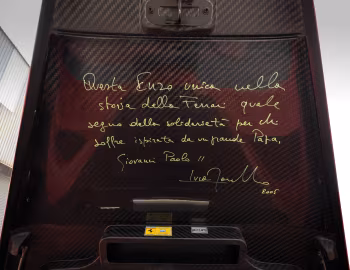 Questa Enzo unica nella
storia della Ferrari quale
segno della solidarietà per chi
soffre ispirata da un grande Papa,
Giovanni Paolo II
2005